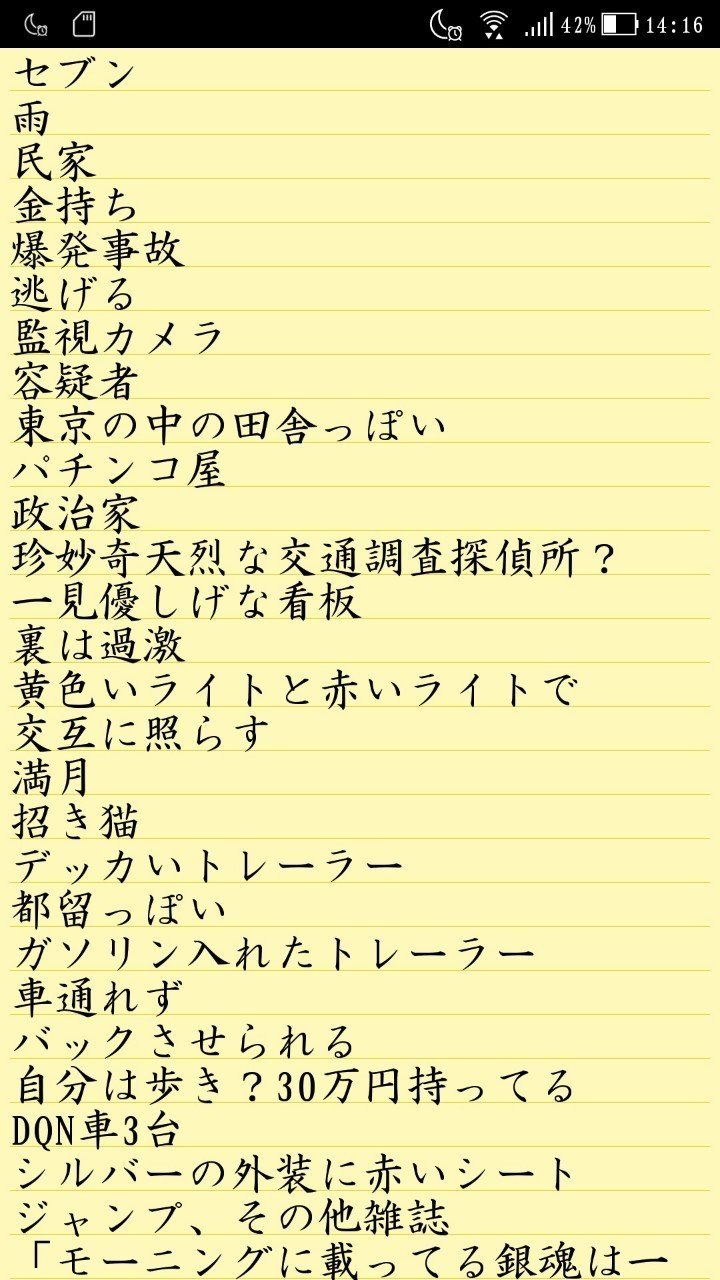 42% 14:16
セブン
雨
民家
金持ち
爆発事故
逃げる
監視カメラ
容疑者
東京の中の田舎っぽい
パチンコ屋
政治家
珍妙奇天烈な交通調査探偵所？
一見優しげな看板
裏は過激
黄色いライトと赤いライトで
交互に照らす
満月
招き猫
デッカいトレーラー
都留っぽい
ガソリン入れたトレーラー
車通れず
バックさせられる
自分は歩き？30万円持ってる
DQN車3台
シルバーの外装に赤いシート
ジャンプ、その他雑誌
「モーニングに載ってる銀魂は一